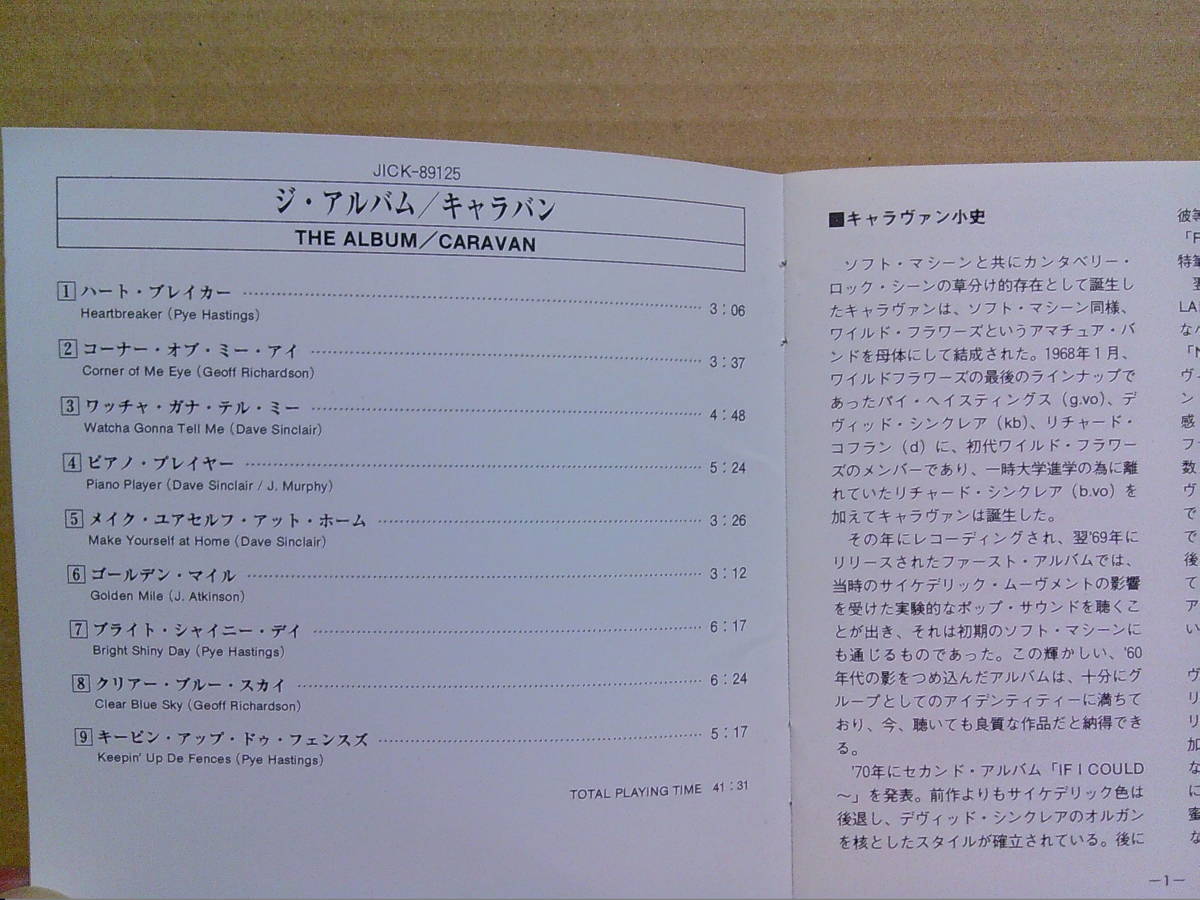 JICK-89125
ジ・アルバム／キャラバン
THE ALBUM／CARAVAN
1 ハート・ブレイカー 3:06
Heartbreaker (Pye Hastings)
2 コーナー・オブ・ミー・アイ 3:37
Corner of Me Eye (Geoff Richardson)
3 ワッチャ・ガナ・テル・ミー 4:48
Watcha Gonna Tell Me (Dave Sinclair)
4 ピアノ・プレイヤー 5:24
Piano Player (Dave Sinclair / J. Murphy)
5 メイク・ユアセルフ・アット・ホーム 3:26
Make Yourself at Home (Dave Sinclair)
6 ゴールデン・マイル 3:12
Golden Mile (J. Atkinson)
7 ブライト・シャイニー・デイ 6:17
Bright Shiny Day (Pye Hastings)
8 クリアー・ブルー・スカイ 6:24
Clear Blue Sky (Geoff Richardson)
9 キーピン・アップ・ドゥ・フェンスズ 5:17
Keepin' Up De Fences (Pye Hastings)
TOTAL PLAYING TIME 41:31
■キャラヴァン小史
ソフト・マシーンと共にカンタベリー・
ロック・シーンの草分け的存在として誕生し
たキャラヴァンは、ソフト・マシーン同様、
ワイルド・フラワーズというアマチュア・バ
ンドを母体にして結成された。1968年1月、
ワイルドフラワーズの最後のラインナップで
あったパイ・ヘイスティングス (g.vo)、デ
ヴィッド・シンクレア (kb)、リチャード・
コフラン (d) に、初代ワイルド・フラワー
ズのメンバーであり、一時大学進学の為に離
れていたリチャード・シンクレア (b.vo) を
加えてキャラヴァンは誕生した。
その年にレコーディングされ、翌'69年に
リリースされたファースト・アルバムでは、
当時のサイケデリック・ムーヴメントの影響
を受けた実験的なポップ・サウンドを聴くこ
とが出き、それは初期のソフト・マシーンに
も通じるものであった。この輝かしい、'60
年代の影をつめ込んだアルバムは、十分にグ
ループとしてのアイデンティティーに満ちて
おり、今、聴いても良質な作品だと納得でき
る。
'70年にセカンド・アルバム「IF I COULD
～」を発表。前作よりもサイケデリック色は
後退し、デヴィッド・シンクレアのオルガン
を核としたスタイルが確立されている。後に
—1—